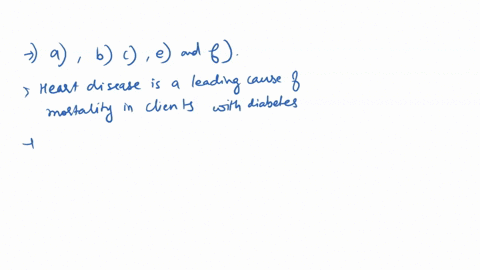 →) a) , b) c) , e) and f).
> Heart disease is a leading cause of
mortality in clients with diabetes